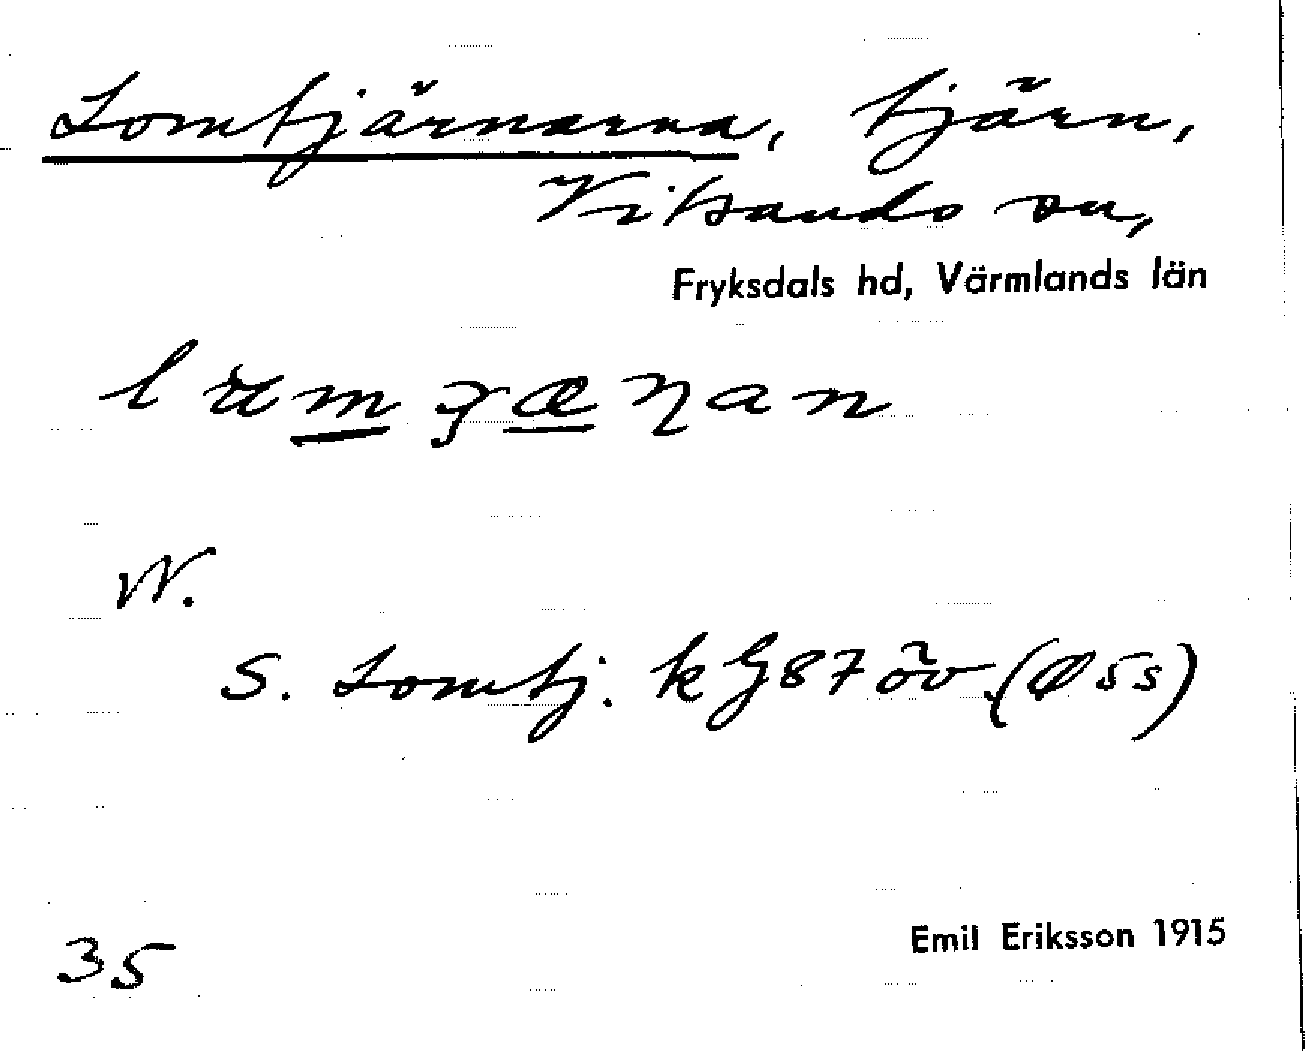 Lomtjärnarna, tjärn,
Vitsands sn,
Fryksdals hd, Värmlands län
W.
S. Lomtj. k G87 öv. (Ø5s)
35
Emil Eriksson 1915